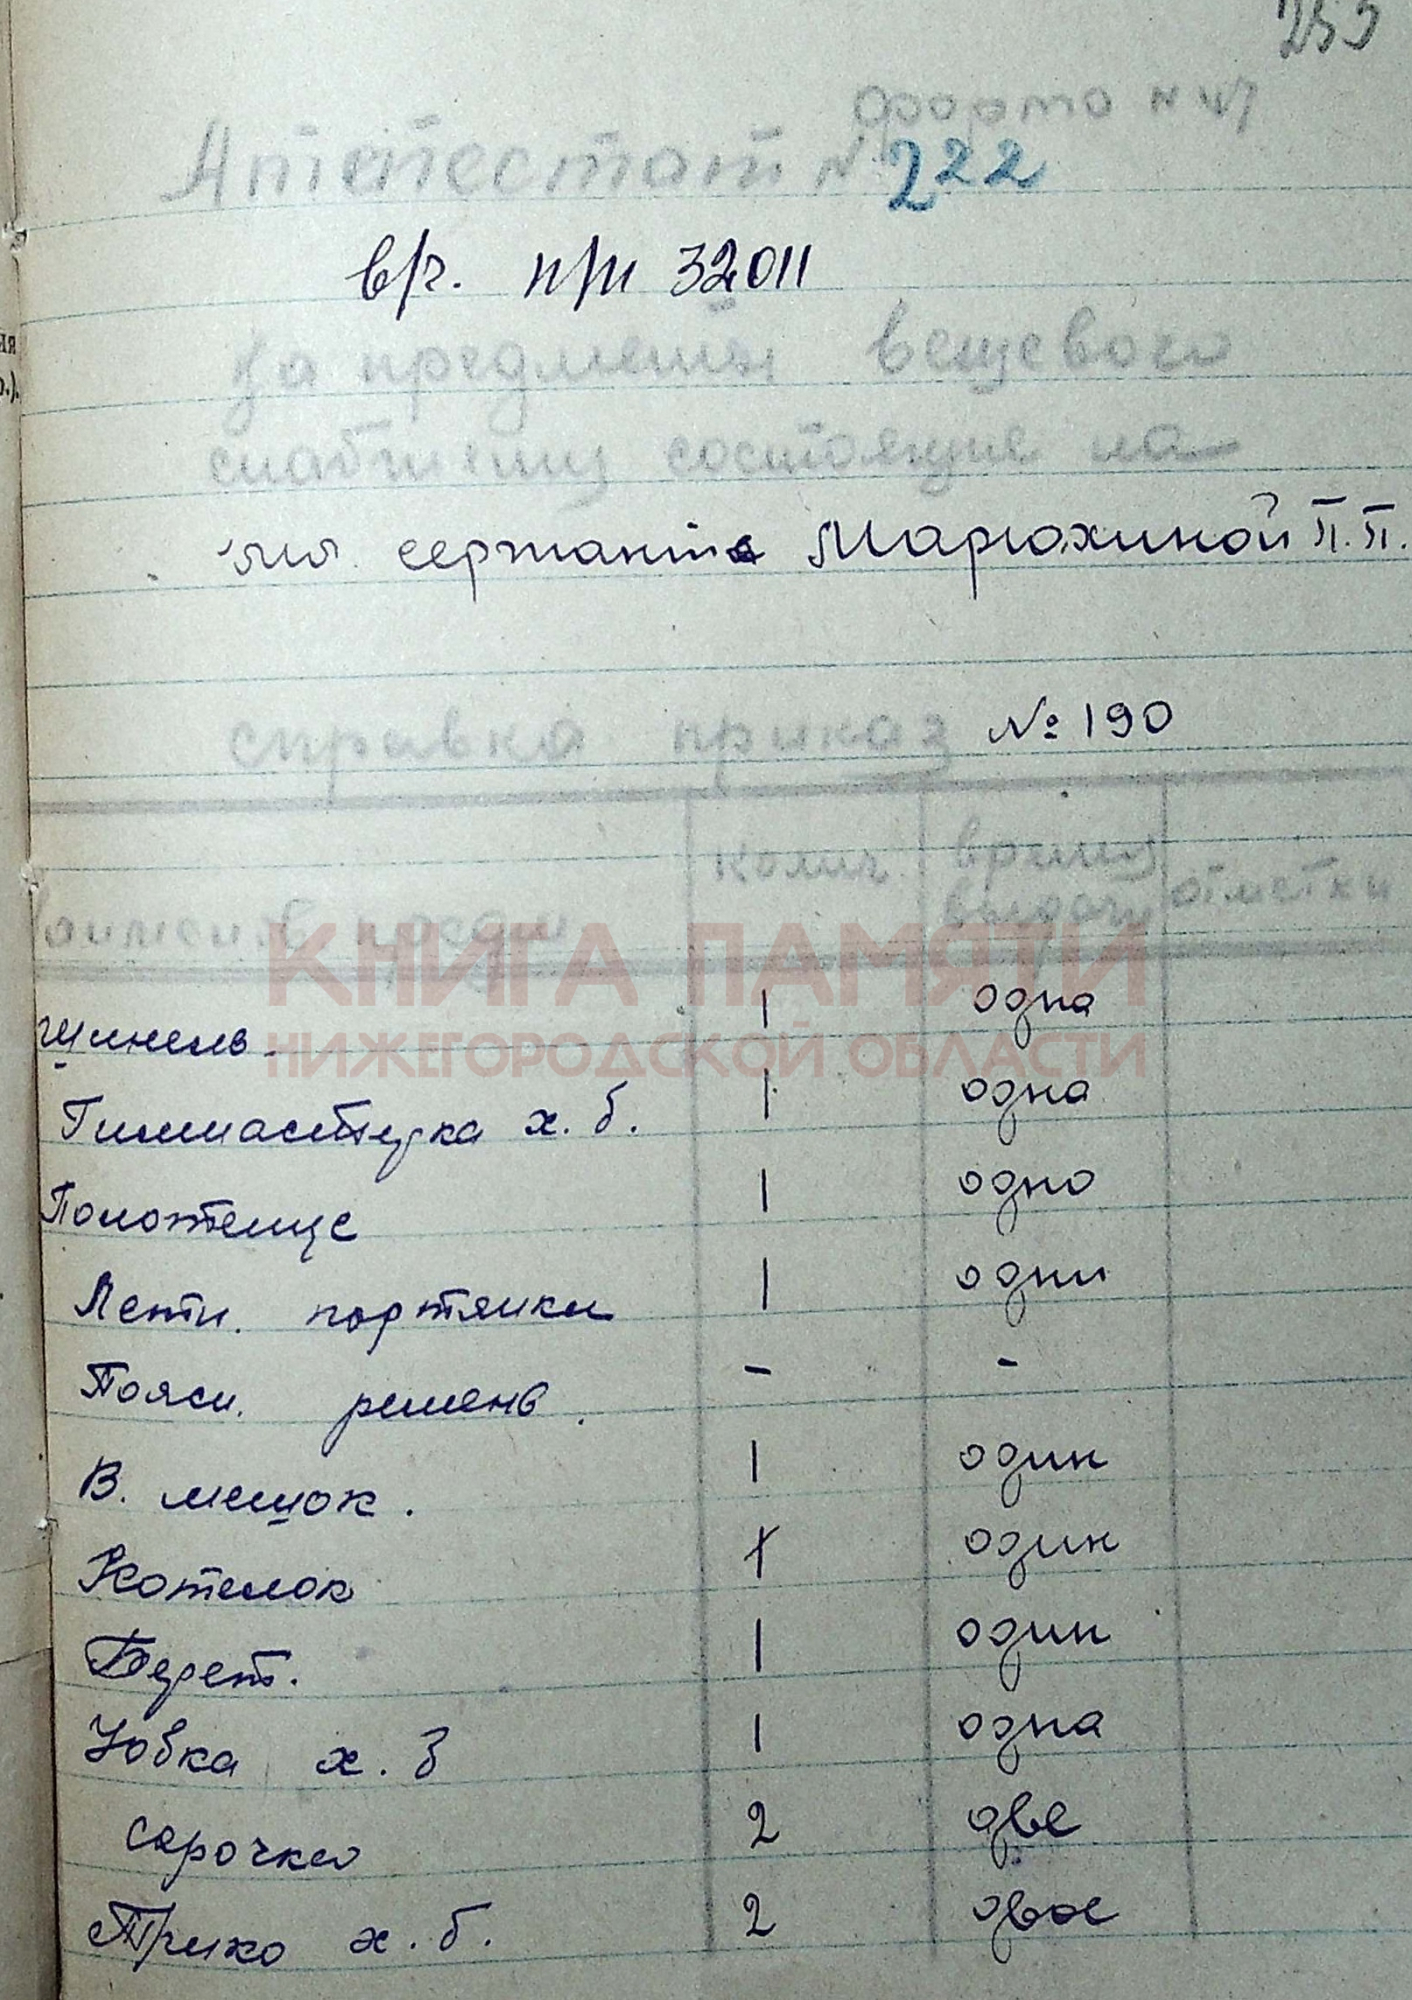 форма N
Аттестат N 222
в/ч. п/п 32011
на предметы вещевого
снабжения состоящие на
мл. сержанта Марюхиной П.П.
справка приказ № 190
колич. время выдачи отметки
КНИГА ПАМЯТИ
НИЖЕГОРОДСКОЙ ОБЛАСТИ
Шинель 1 одна
Гимнастерка х.б. 1 одна
Полотенце 1 одно
Летн. портянки 1 одни
Поясн. ремень. - -
В. мешок. 1 один
Котелок 1 один
Берет. 1 один
Юбка х.б 1 одна
сорочка 2 две
Трико х.б. 2 двое